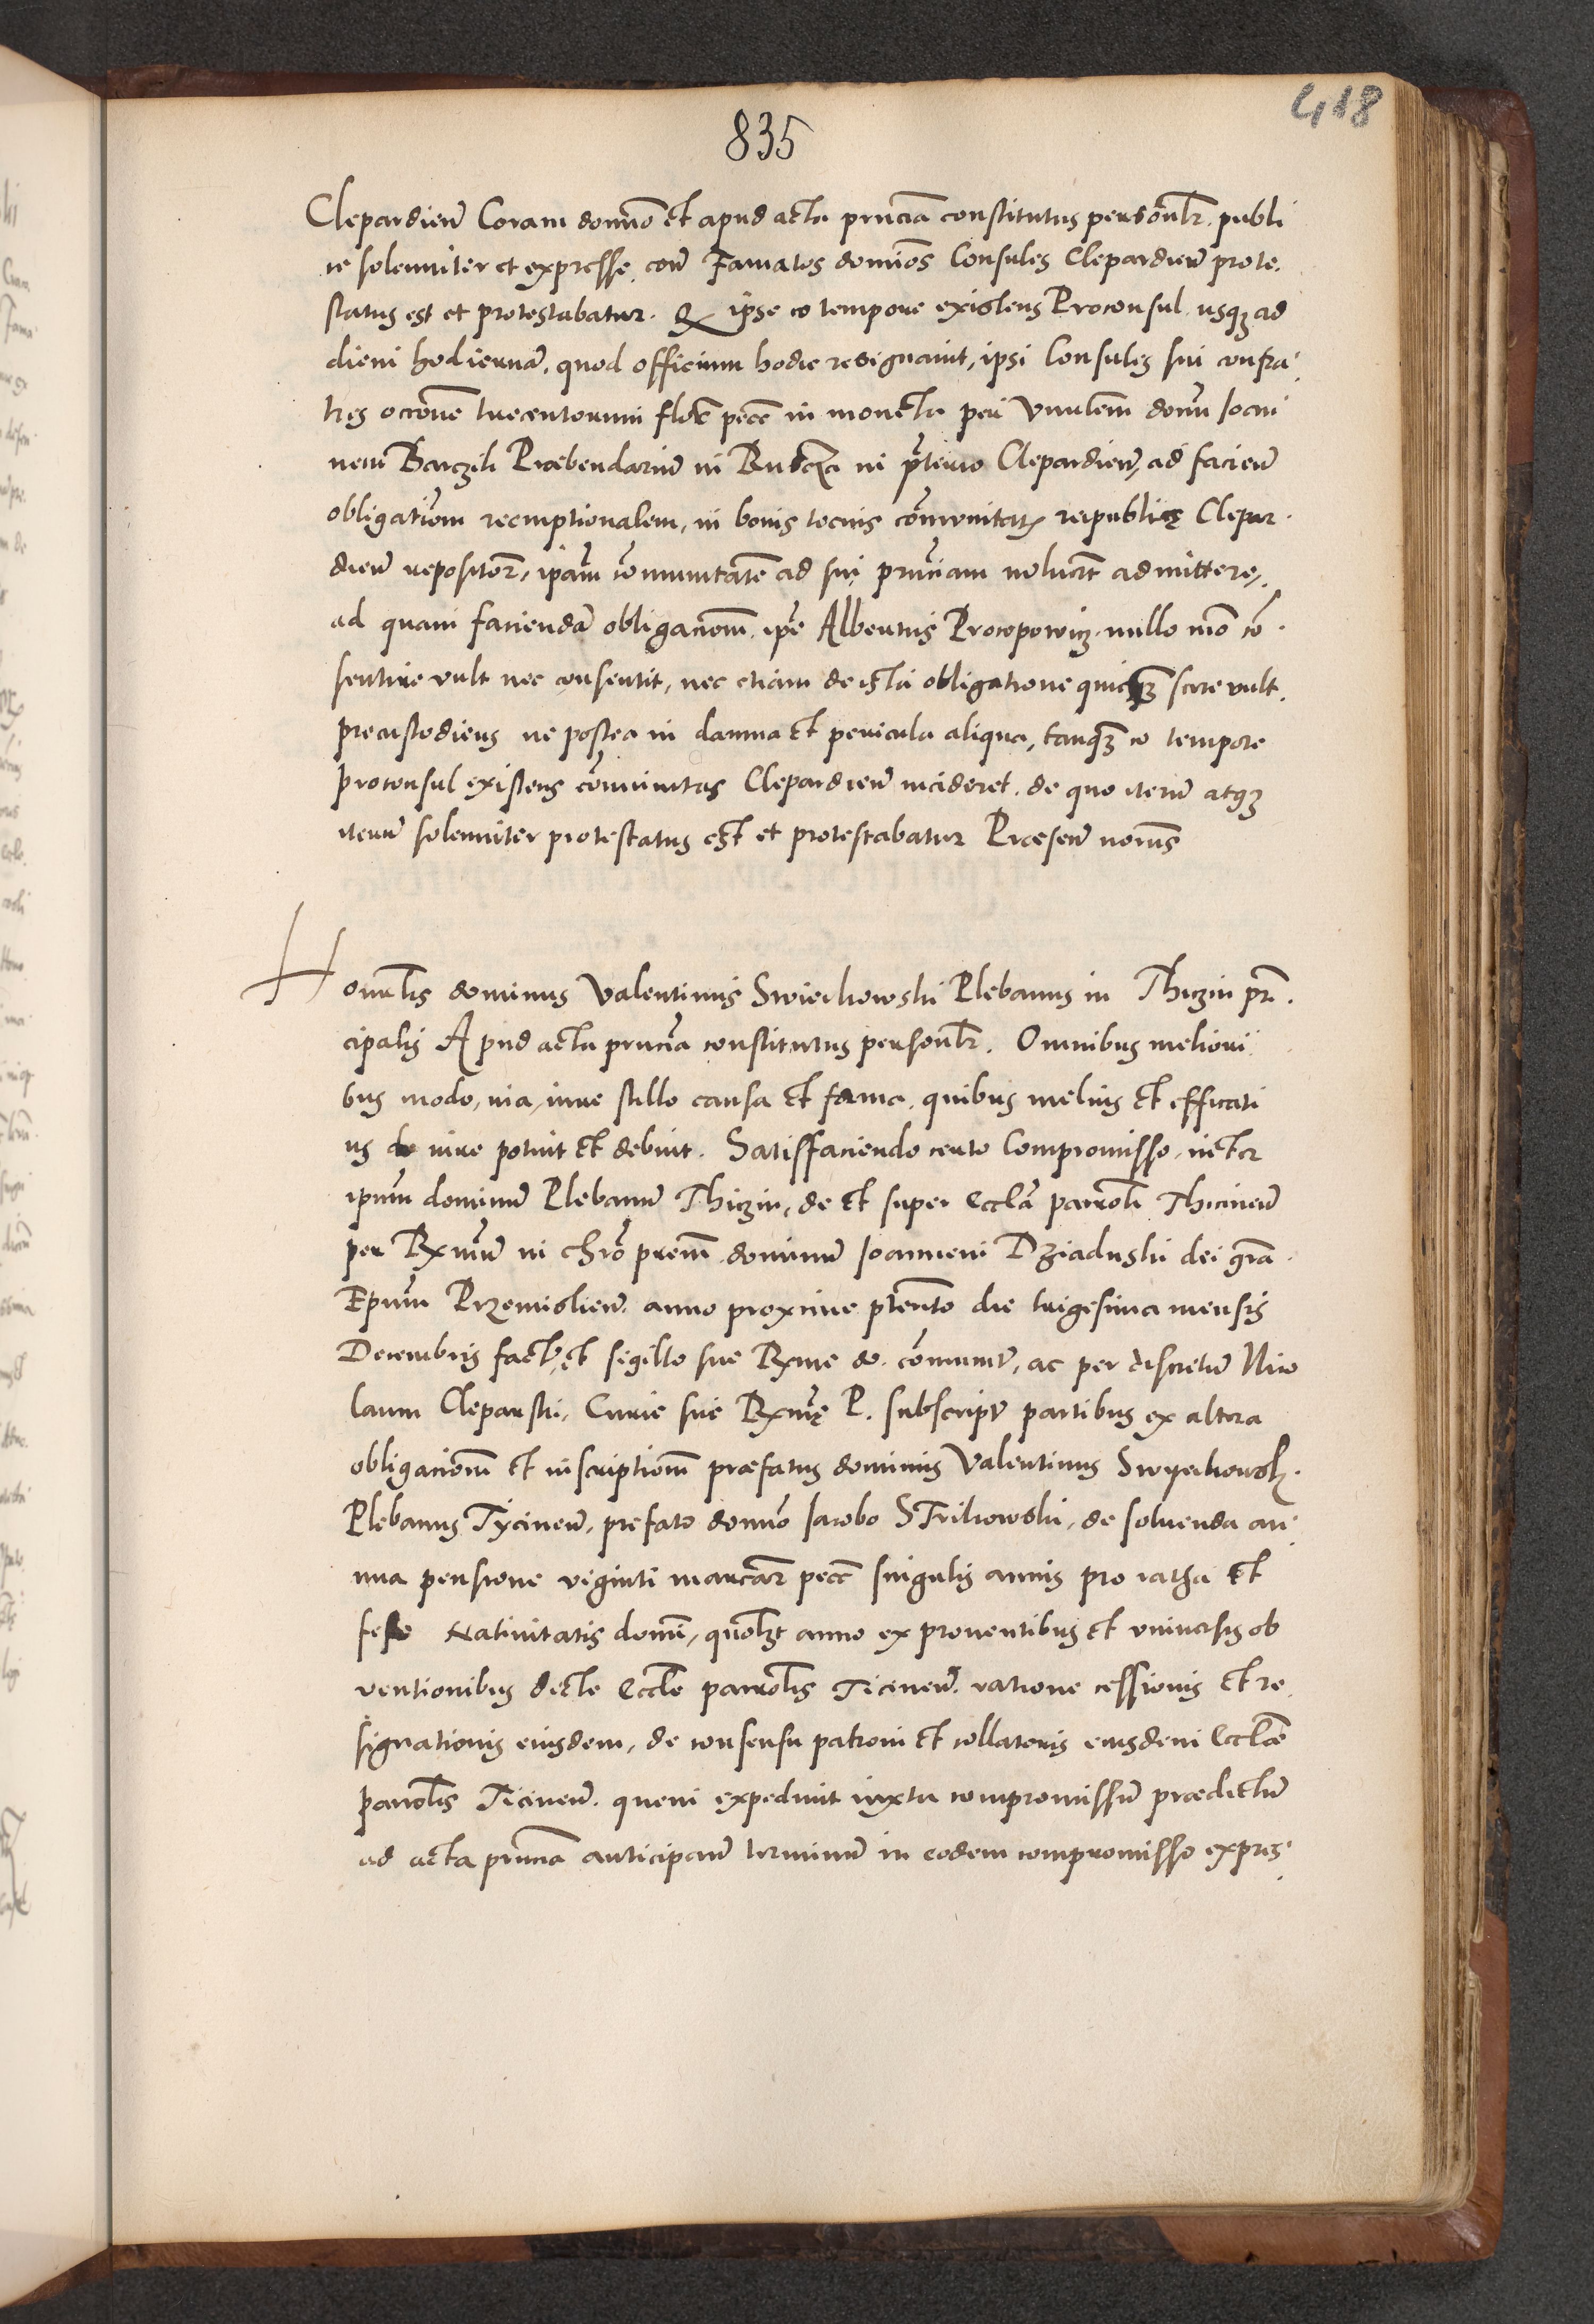 418
835
Clepardien̄ Coram domīno et apud acta pn̄cia constitutus personlr̄. publi
ce solenniter et expresse, con̄ Famatos domīos Consules Clepardien̄ prote.
status est et protestabatur. Q ipse eo tempore existens Proconsul usq3 ad
diem hodiernā, quod officium hodie resignauit, ipsi Consules sui confra
tres occōne trecentorum flor̄ pecc̄ in moneta per Vn̄lem domn̄ Joan
nem Barczik Præbendarium in in Clepardien̄, ad facien̄
obligatiōem reemptionalem, in bonis locis cōmunitatis reipublicę Clepar
dien̄ repositor̄, ipām cōmunitatē ad sui pn̄ciam noluer̄t admittere,
ad quam faciendā obligacioēm, ipē Albertus Procopowicz nullo mō cō
sentire vult nec consentit, nec etiam de ista obligatione quicq3 scire vult.
precustodiens ne postea in damna et pericula aliqua, tanq3 eo tempore
proconsul existens cōmunitas Clepardien̄ incideret. de quo iterū atq3
iterū solenniter protestatus est et protestabatur Præsen̄ nōrijs
Honorlis dominus Valentinus Swiechowski Plebanus in Thiczin prī
cipalis Apud acta pn̄cia constitutus personlr̄. Omnibus meliori
bus modo, via, iure stillo causa et forma, quibus melius et efficati
us de iure potuit et debuit. Satisfaciendo certo Compromisso, inter
ipsum dominū Plebanū Thiczin, de et super eccl̄a parrolī Thicinen̄
per Rx̄mum in chrō prēm dominum Joannem Dziaduski dei grā
Epūm Przemislien̄. anno proxime ptērito die trigesima mensis
Decembris fact̄, et sigillo sue Rx̄me do. cōmunit̄, ac per discretū Nico
laum Cleparski, Curie sue Rx̄mę P. subscript̄ partibus ex altera
obligacioēm et inscriptioēm præfatus dominus Valentinus Swyechowsk.
Plebanus Tycinen̄, prefato domīno Jacobo STrikowski, de soluenda an
nua pensione viginti marcar̄ pecc̄ singulis annis pro ratha et
festo Natiuitatis domī, quolꝫt anno ex prouentibus et vniuersis ob
uentionibus dicte eccl̄e parrolīs Ticinen̄. ratione cessionis et re
signationis eiusdem, de consensu patroni et collatoris eiusdem Eccl̄æ
parrolīs Ticinen̄. quem expediuit iuxta compromissum prædictum
ad acta pn̄cia anticipan̄ terminū in eodem compromisso expres